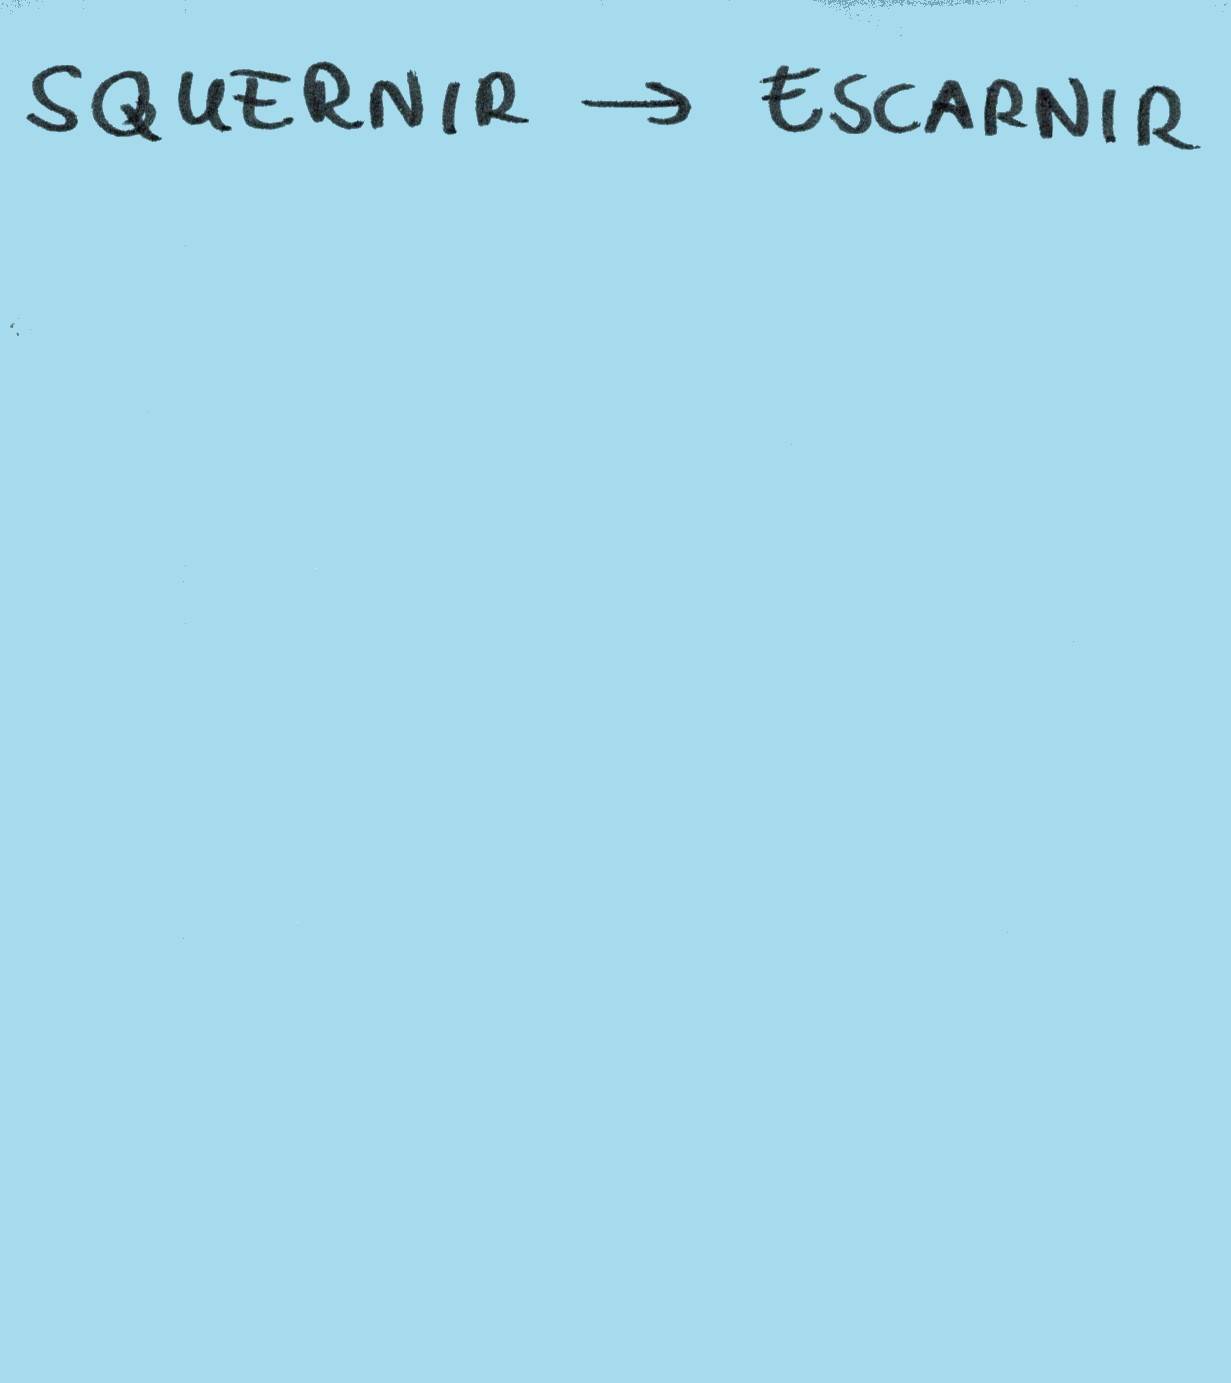 SQUERNIR → ESCARNIR